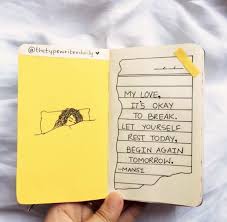 @thetypewriterdaily ♥
MY LOVE,
IT'S OKAY
TO BREAK.
LET YOURSELF
REST TODAY,
BEGIN AGAIN
TOMORROW.
-MANSI